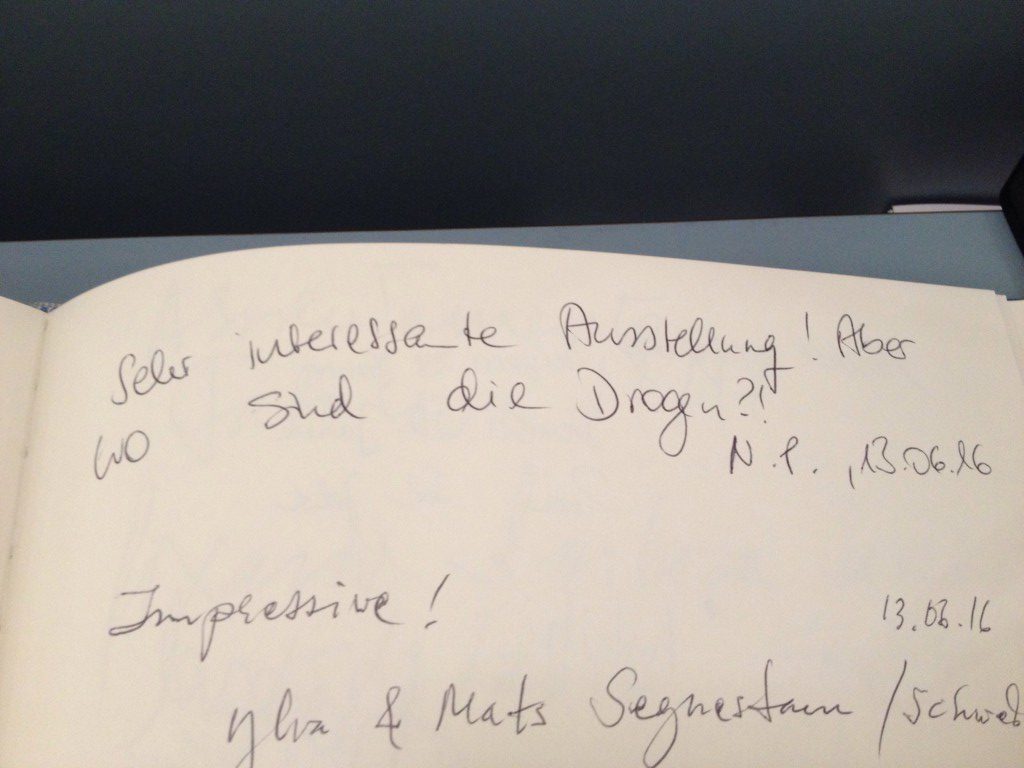 Sehr interessante Ausstellung! Aber
wo sind die Drogen?!
N.P., 13.06.16
Impressive! 13.06.16
Ylva & Mats Segnestam /